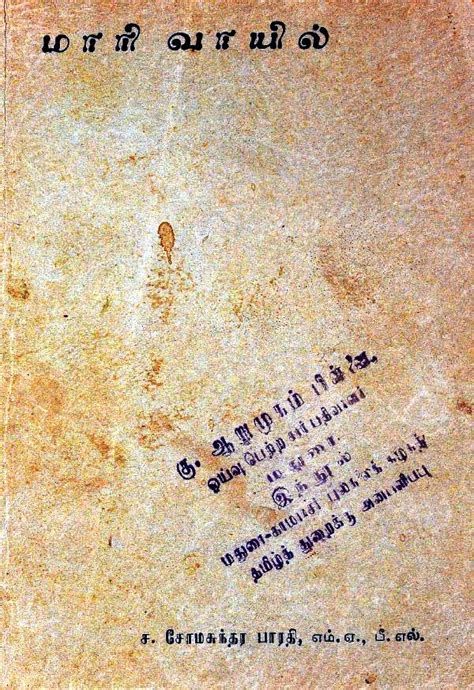 மாரி வாயில்
கு. ஆறுமுகம் பிள்ளை,
ஓய்வு பெற்ற சார் பதிவாளர்
மதுரை.
இந்நூல்
மதுரை-காமராசர் பல்கலைக் கழகத்
தமிழ்த் துறைக்கு அன்பளிப்பு
ச. சோமசுந்தர பாரதி, எம்.ஏ., பீ.எல்.